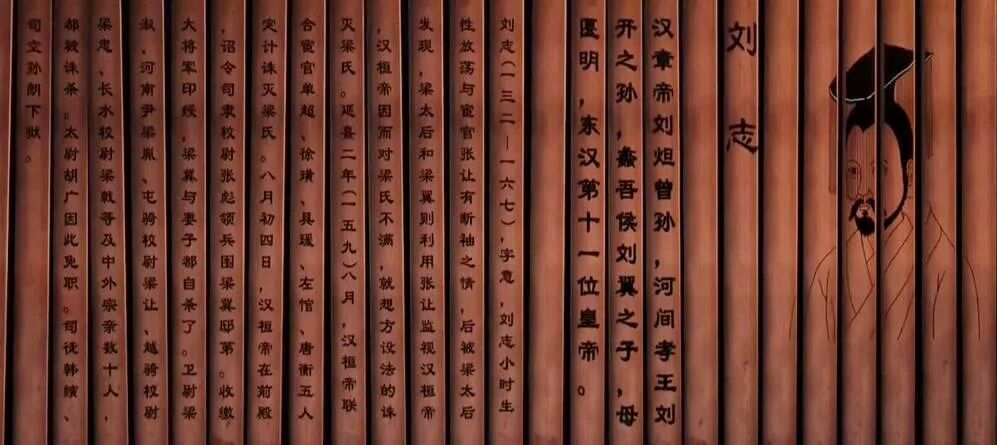 刘志
汉章帝刘炟曾孙，河间孝王刘
开之孙，蠡吾侯刘翼之子，母
匽明，东汉第十一位皇帝。
刘志（一三二—一六七），字意，刘志小时生
性放荡与宦官张让有断袖之情，后被梁太后
发现，梁太后和梁翼则利用张让监视汉桓帝
，汉桓帝因而对梁氏不满，就想方设法的诛
灭梁氏。延熹二年（一五九）八月，汉桓帝联
合宦官单超、徐璜、具瑗、左悺、唐衡五人
定计诛灭梁氏。八月初四日，汉桓帝在前殿
，诏令司隶校尉张彪领兵围梁翼邸第。收缴
大将军印绶，梁翼与妻子都自杀了。卫尉梁
淑、河南尹梁胤、屯骑校尉梁让、越骑校尉
梁忠、长水校尉梁戟等及中外宗亲数十人，
都被诛杀。太尉胡广因此免职。司徒韩縯、
司空孙朗下狱。